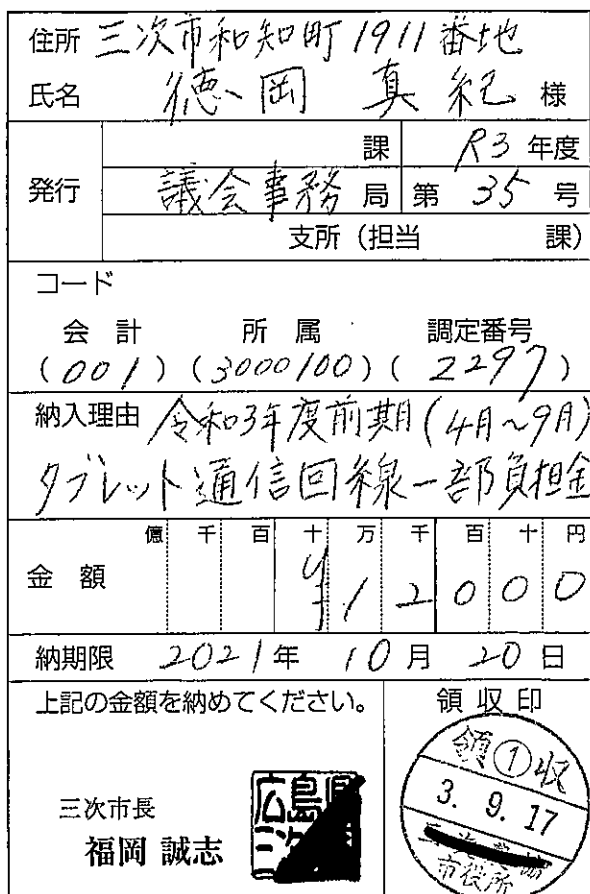 住所 三次市和知町1911番地
氏名 徳岡 真紀 様
発行
課 R3 年度
議会事務 局 第 35 号
支所 (担当 課)
コード
会計 所属 調定番号
(001) (3000100) (2297)
納入理由 令和3年度前期(4月~9月)
タブレット通信回線一部負担金
億 千 百 十 万 千 百 十 円
金額 ¥12000
納期限 2021年 10月 20日
上記の金額を納めてください。
領収印
三次市長
福岡 誠志
広島県
三次
領①収
3. 9. 17
市役所